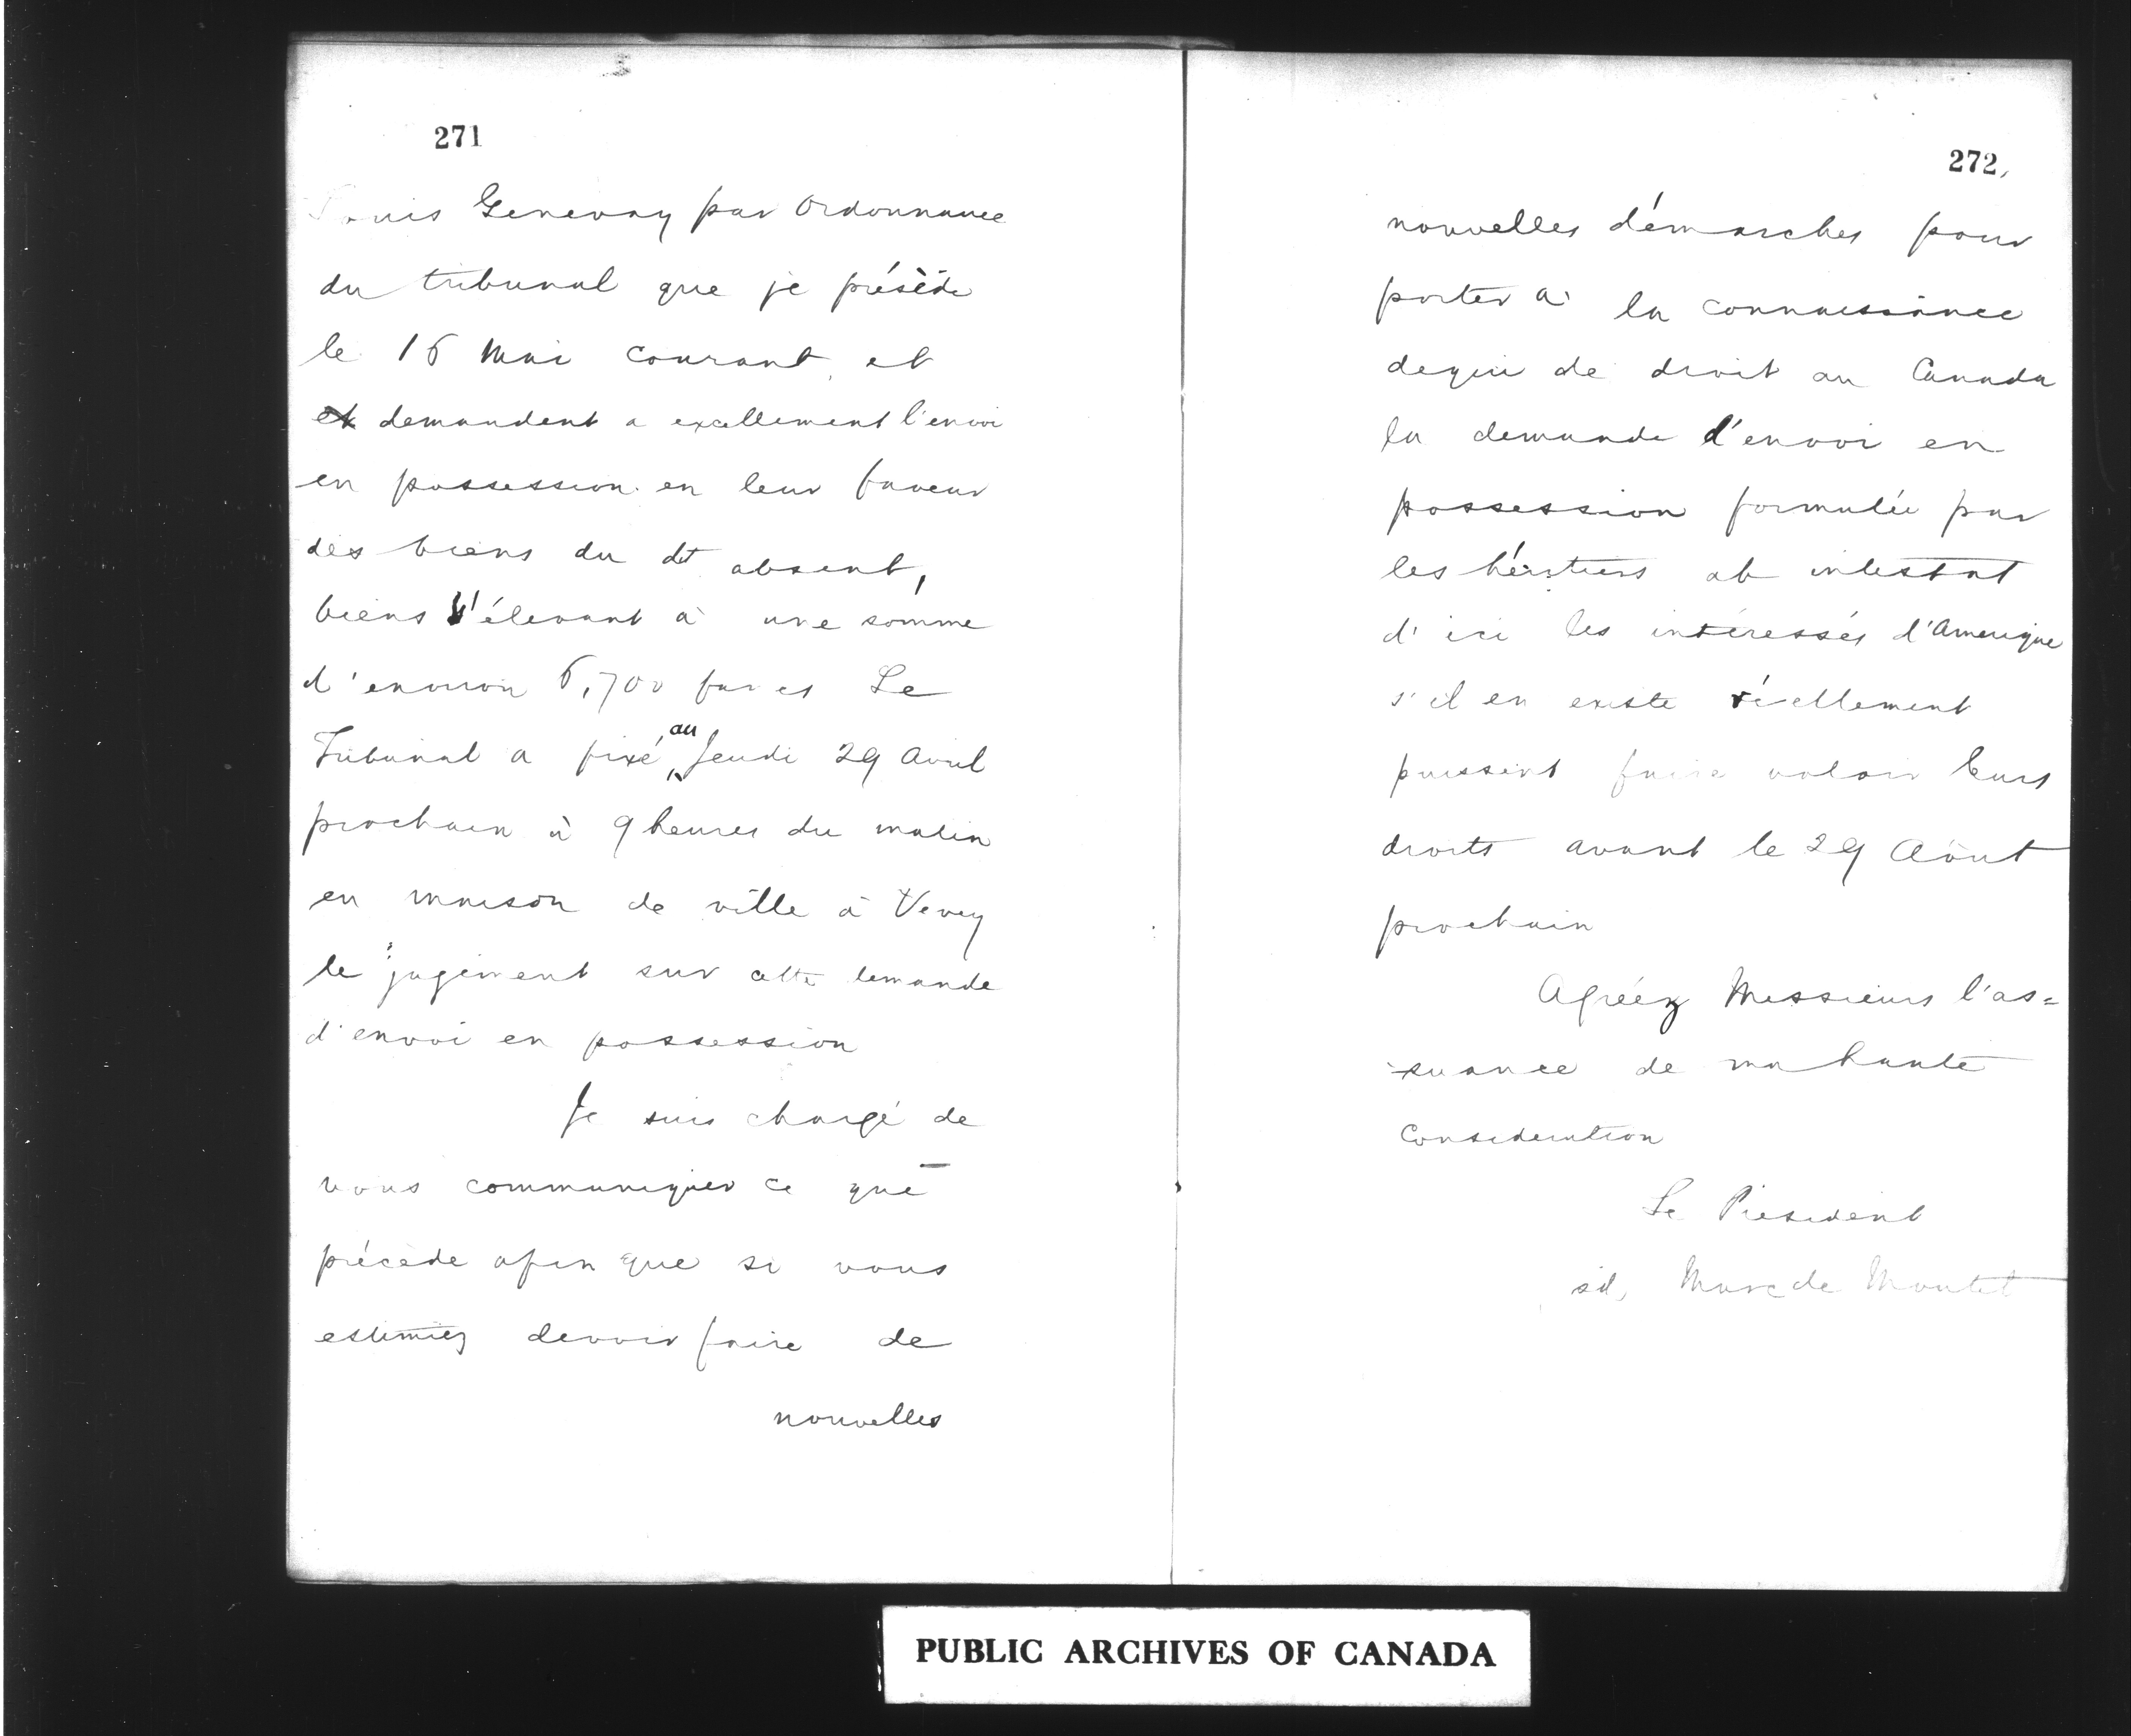 271
Louis Genevay par Ordonnance
du tribunal que je préside
le 16 Mai courant, et
et demandent a excellement l'envoi
en possession en leur faveur
des biens du dt absent,
biens s'élevant à une somme
d'environ 6,700 francs Le
Tribunal a fixé au Jeudi 29 Avril
prochain à 9 heures du matin
en maison de ville à Vevey
le jugement sur cette demande
d'envoi en possession
Je suis chargé de
vous communiquer ce que
précède afin que si vous
estimiez devoir faire de
nouvelles
272,
nouvelles démarches pour
porter à la connaissance
de qui de droit au Canada
la demande d'envoi en
possession formulée par
les héritiers ab intestat
d'ici les intéressés d'Amerique
s'il en existe réellement
puissent faire valoir leurs
droits avant le 29 Aôut
prochain
Agréez Messieurs l'as=
surance de ma haute
Consideration
Le President
sd, Marc de Montet
PUBLIC ARCHIVES OF CANADA